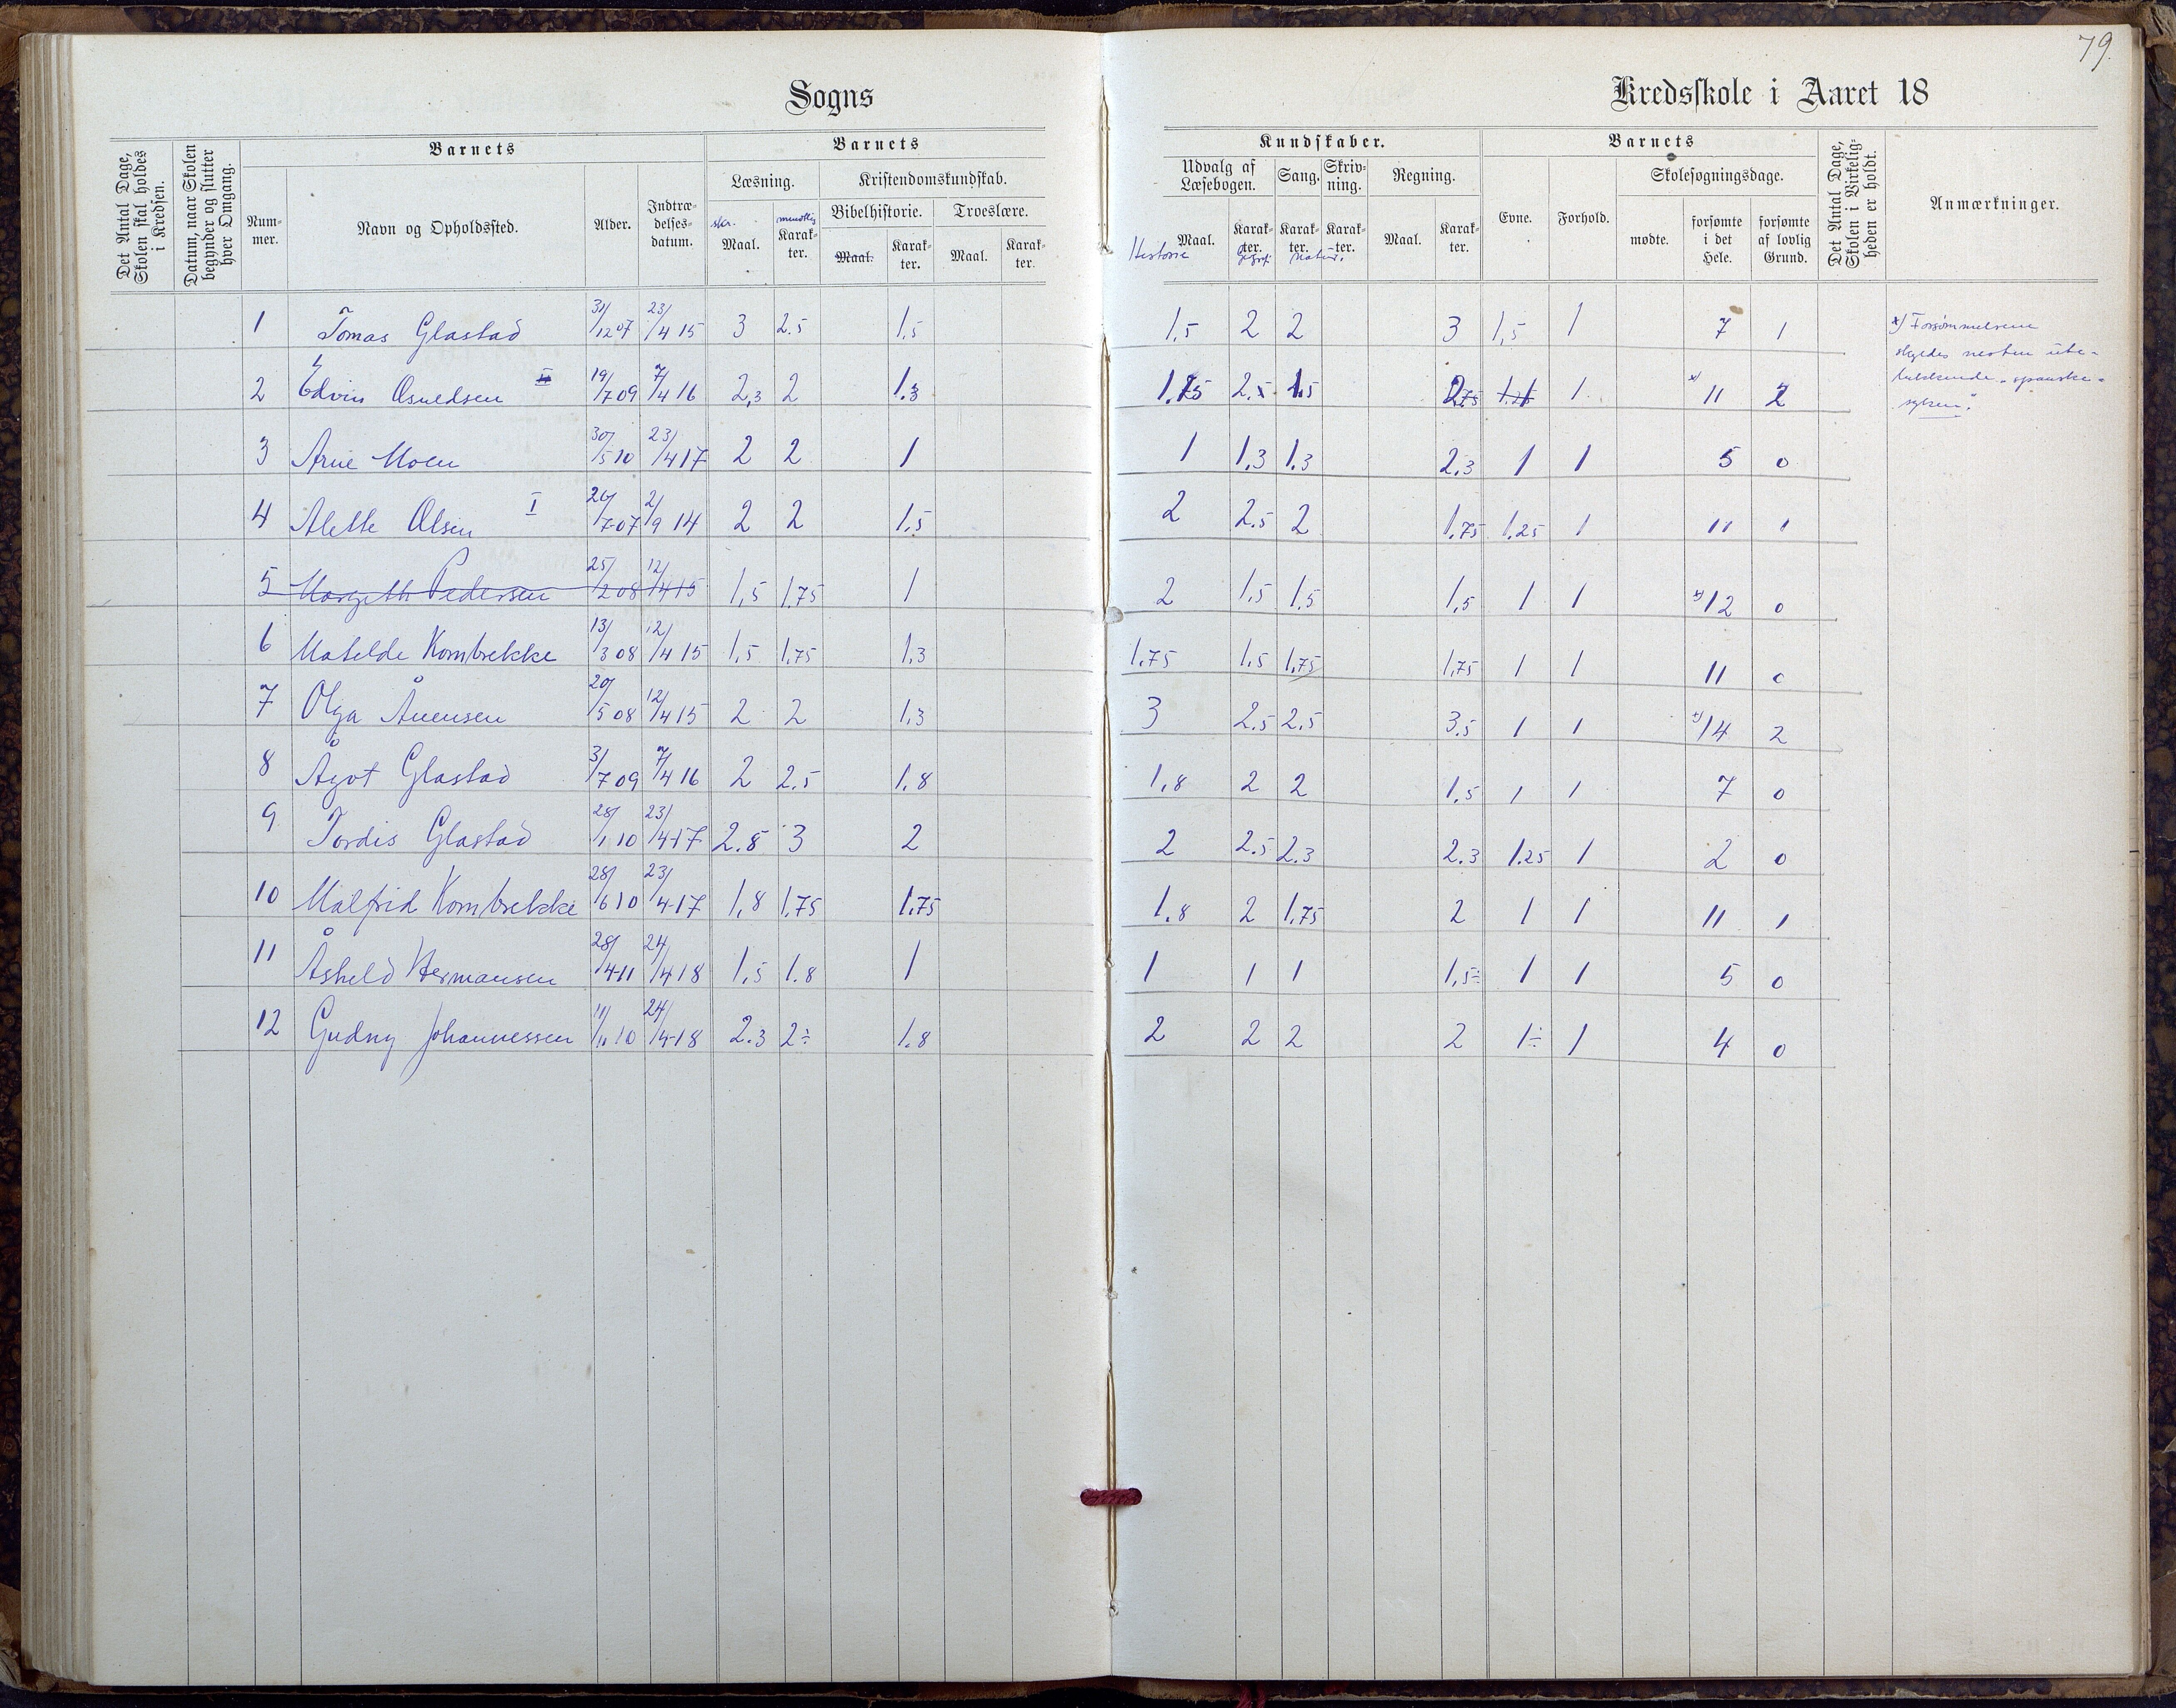 79.
Sogns
Kredsskole i Aaret 18
Det Antal Dage, Skolen skal holdes i Kredsen.
Datum, naar Skolen begynder og slutter hver Omgang.
Barnets
Barnets
Kundskaber.
Barnets
Det Antal Dage, Skolen i Virkeligheden er holdt.
Anmærkninger.
Læsning. Kristendomskundskab.
Udvalg af Læsebogen. Sang. Skrivning. Regning.
Skolesøgningsdage.
Nummer. Navn og Opholdssted. Alder. Indtrædelsesdatum.
skr. Maal. mundtlig Karakter.
Bibelhistorie. Troeslære.
Maal. Karakter. Maal. Karakter.
Historie Maal. Karakter. Geogr. Karakter. Natur. Karakter. Maal. Karakter.
Evne. Forhold. mødte. forsømte i det Hele. forsømte af lovlig Grund.
1 Tomas Glastad 31/12 07 23/4 15 3 2.5 1,5 1,5 2 2 3 1,5 1 7 1
2 Edvin Osuldsen II 19/7 09 7/4 16 2,3 2 1.3 1.75 2.5 1.5 2.75 1.25 1 x) 11 2
3 Arne Moen 30/5 10 23/4 17 2 2 1 1 1,3 1,3 2,3 1 1 5 0
4 Alette Olsen I 26/7 07 2/9 14 2 2 1.5 2 2.5 2 1.75 1.25 1 11 1
5 Margith Pedersen 25/2 08 12/4 15 1,5 1.75 1 2 1,5 1,5 1,5 1 1 x) 12 0
6 Matelde Kornbrekke 13/3 08 12/4 15 1,5 1,75 1,3 1.75 1.5 1,75 1,75 1 1 11 0
7 Olga Ånensen 20/5 08 12/4 15 2 2 1,3 3 2.5 2.5 3.5 1 1 x) 14 2
8 Ågot Glastad 3/7 09 7/4 16 2 2.5 1.8 1,8 2 2 1.5 1 1 7 0
9 Tordis Glastad 28/1 10 23/4 17 2.8 3 2 2 2.5 2.3 2.3 1.25 1 2 0
10 Målfrid Kornbrekke 28/6 10 23/4 17 1,8 1,75 1.75 1.8 2 1,75 2 1 1 11 1
11 Åshild Hermansen 28/4 11 24/4 18 1,5 1.8 1 1 1 1 1,5÷ 1 1 5 0
12 Gudny Johannessen 11/11 10 24/4 18 2.3 2÷ 1.8 2 2 2 2 1÷ 1 4 0
x) Forsømmelsene
skyldes nesten ute-
lukkende "spanske-
syken".